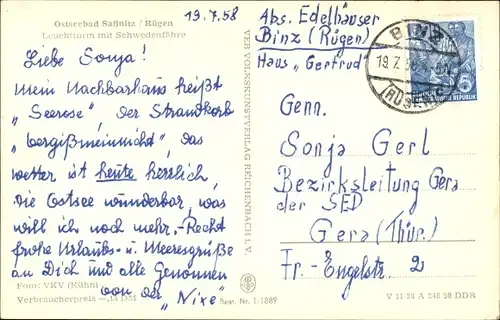 Ostseebad Saßnitz / Rügen
Leuchtturm mit Schwedenfähre
19.7.58
Liebe Sonja!
Mein Nachbarhaus heißt
"Seerose", der Strandkorb
"vergißmeinnicht", das
Wetter ist heute herrlich,
die Ostsee wunderbar, was
will ich noch mehr.-Recht
frohe Urlaubs- u. Meeresgrüße
an Dich und alle Genossen
von der "Nixe"
Foto: VKV (Kühn)
Verbraucherpreis -,15 DM
Best. Nr. 1/1889
VEB VOLKSKUNSTVERLAG REICHENBACH i. V.
Abs. Edelhäuser
Binz (Rügen)
Haus "Gertrud"
BINZ
19.7.
(RÜGEN)
5
REPUBLIK
Genn.
Sonja Gerl
Bezirksleitung Gera
der SED
Gera (Thür.)
Fr.-Engelstr. 2
V 11 28 A 246 58 DDR